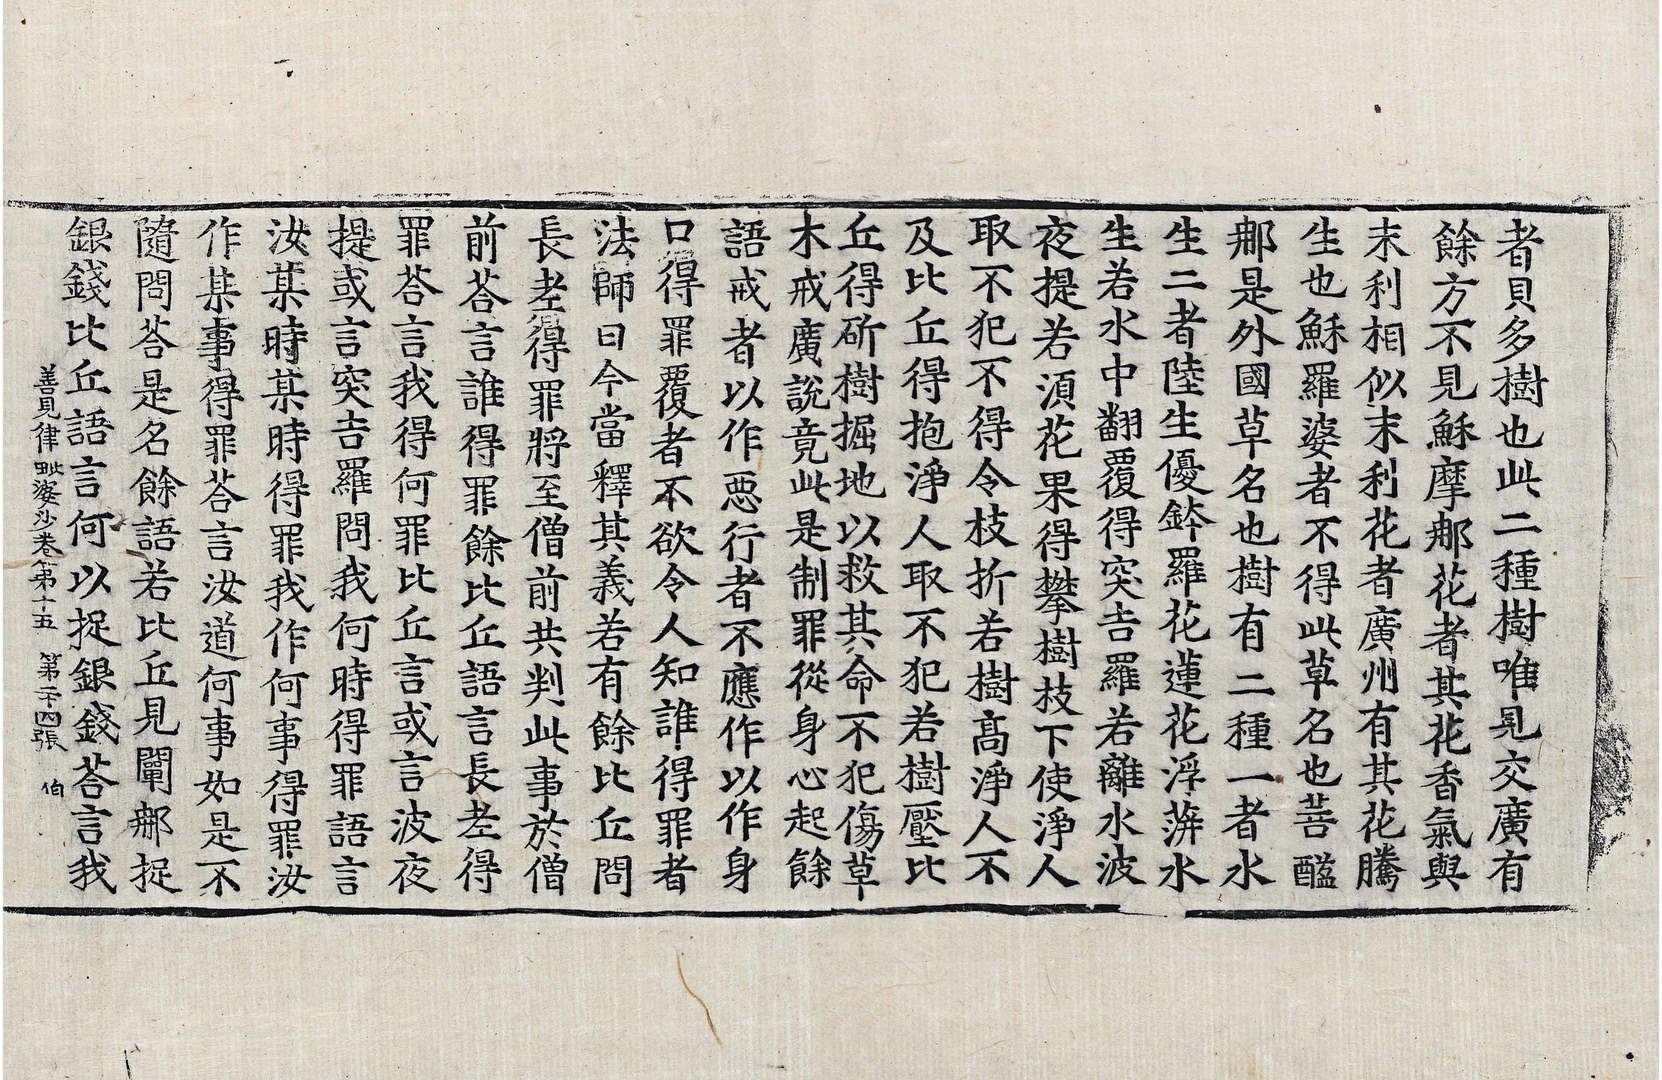 者貝多樹也此二種樹唯見交廣有
餘方不見穌摩𨚗花者其花香氣與
末利相似末利花者廣州有其花騰
生也穌羅婆者不得此草名也菩醯
𨚗是外國草名也樹有二種一者水
生二者陸生優鉢羅花蓮花浮蓱水
生若水中翻覆得突吉羅若離水波
夜提若湏花果得攀樹枝下使淨人
取不犯不得令枝折若樹髙淨人不
及比丘得抱淨人取不犯若樹壓比
丘得斫樹掘地以救其命不犯傷草
木戒廣說竟此是制罪從身心起餘
語戒者以作惡行者不應作以作身
口得罪覆者不欲令人知誰得罪者
法師曰今當釋其義若有餘比丘問
長老得罪將至僧前共判此事於僧
前荅言誰得罪餘比丘語言長老得
罪荅言我得何罪比丘言或言波夜
提或言突吉羅問我何時得罪語言
汝某時某時得罪我作何事得罪汝
作某事得罪荅言汝道何事如是不
隨問荅是名餘語若比丘見闡𨚗捉
銀錢比丘語言何以捉銀錢荅言我
善見律毗婆沙卷第十五 第二十四張 伯